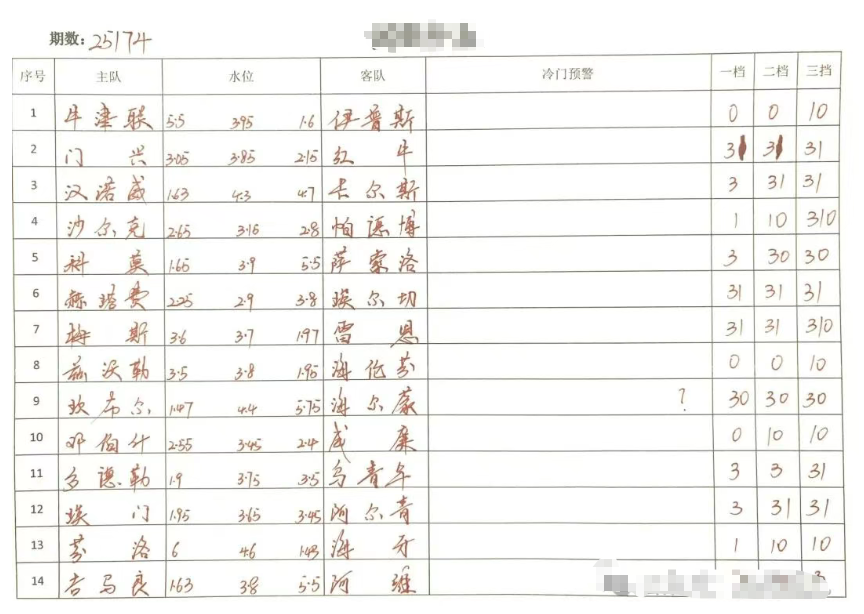 期数: 25174
序号 主队 水位 客队 冷门预警 一档 二档 三挡
1 牛津联 5.5 3.95 1.6 伊普斯 0 0 10
2 门兴 3.05 3.85 2.15 红牛 31 31 31
3 汉诺威 1.63 4.3 4.7 卡尔斯 3 31 31
4 沙尔克 2.65 3.16 2.8 帕德博 1 10 310
5 科莫 1.65 3.9 5.5 萨索洛 3 30 30
6 赫塔费 2.25 2.9 3.8 埃尔切 31 31 31
7 梅斯 3.6 3.7 1.97 雷恩 31 31 310
8 兹沃勒 3.5 3.8 1.95 海伦芬 0 0 10
9 坎布尔 1.47 4.4 5.75 海尔蒙 ? 30 30 30
10 邓伯什 2.55 3.45 2.4 威廉 0 10 10
11 多德勒 1.9 3.75 3.5 乌青年 3 3 31
12 埃门 1.95 3.65 3.45 阿尔青 3 31 31
13 芬洛 6 4.6 1.43 海牙 1 10 10
14 吉马良 1.63 3.8 5.5 阿维 3